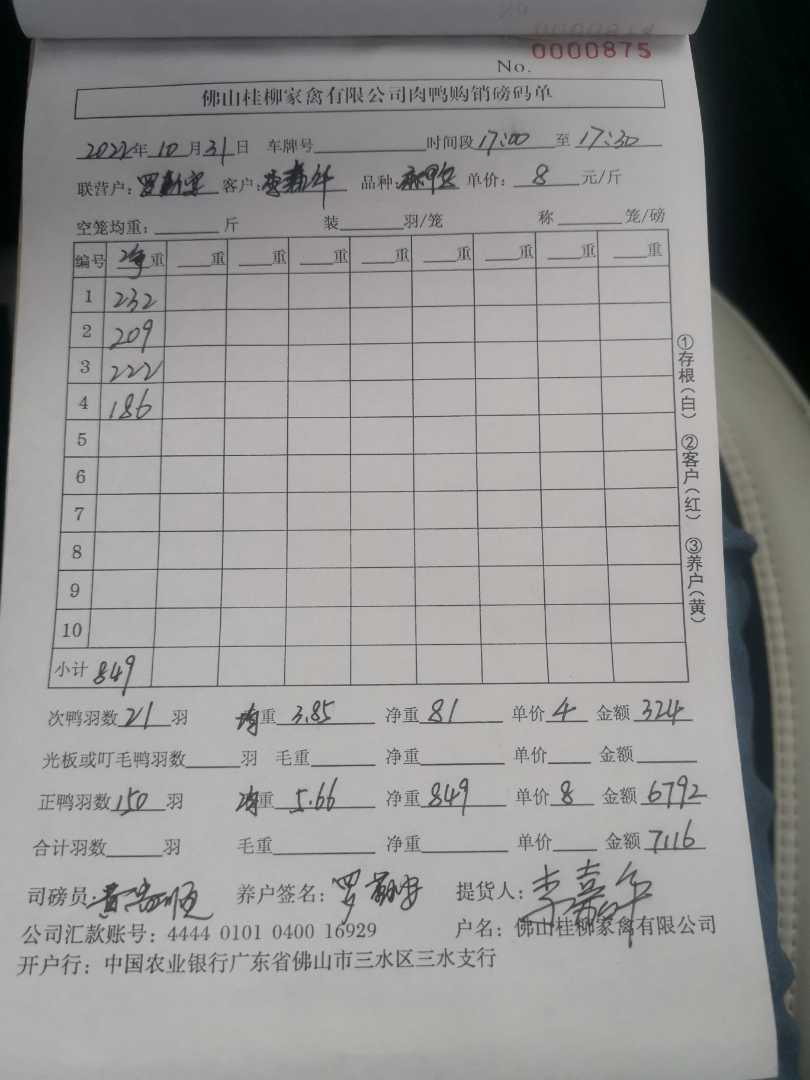 No. 0000875
佛山桂柳家禽有限公司肉鸭购销磅码单
2022年10月31日 车牌号 时间段17:00至17:30
联营户: 客户: 品种: 单价:8元/斤
空笼均重: 斤 装 羽/笼 称 笼/磅
编号 净重 重 重 重 重 重 重 重 重
1 232
2 209
3 222
4 186
5
6
7
8
9
10
小计 849
①存根(白) ②客户(红) ③养户(黄)
次鸭羽数21羽 均重3.85 净重81 单价4 金额324
光板或叮毛鸭羽数 羽 毛重 净重 单价 金额
正鸭羽数150羽 均重5.66 净重849 单价8 金额6792
合计羽数 羽 毛重 净重 单价 金额7116
司磅员: 养户签名: 提货人:
公司汇款账号: 4444 0101 0400 16929 户名: 佛山桂柳家禽有限公司
开户行: 中国农业银行广东省佛山市三水区三水支行